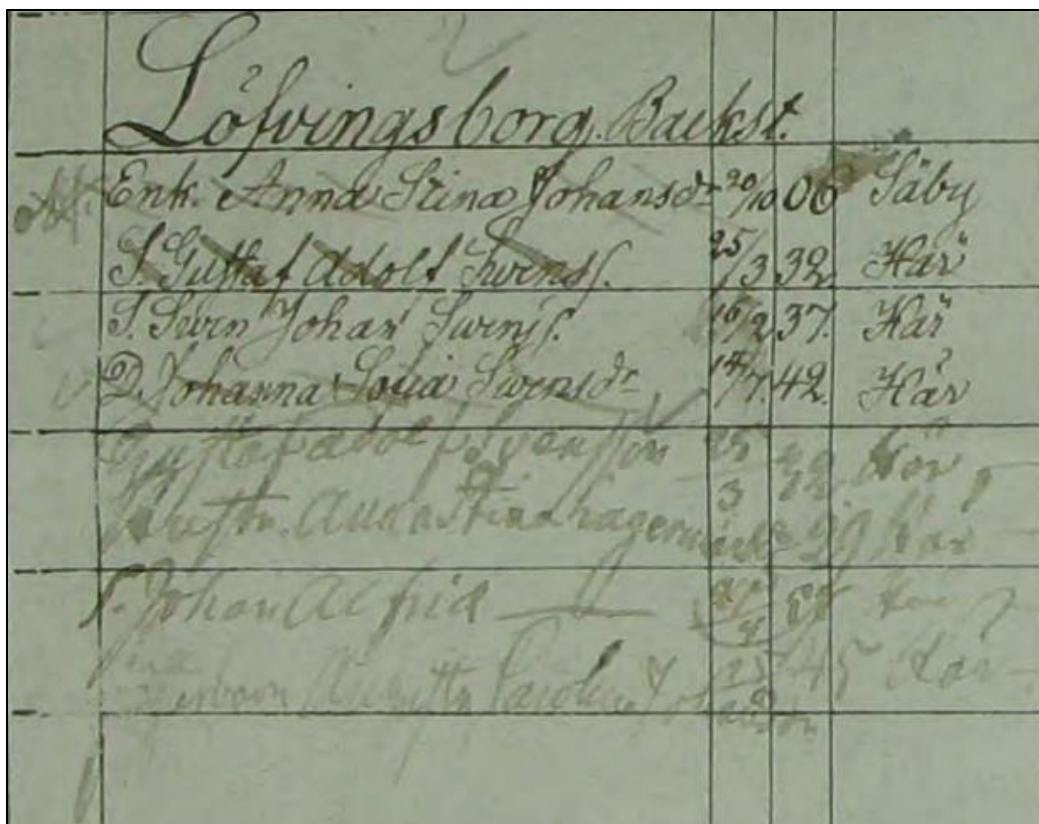 Löfvingsborg. Backst.
Enk. Anna Stina Johansdr 20/10 06 Säby
S. Gustaf Adolf Swenss. 25/3 32. Här
S. Swen Johan Swenss. 16/2 37. Här
D. Johanna Sovia Swensdr 14/7. 42. Här
Gustaf adolf Svensson 25/3 32 här
Hustr. Anna Stina 29 här
S. Johan Alfrid
Carolina 25 45